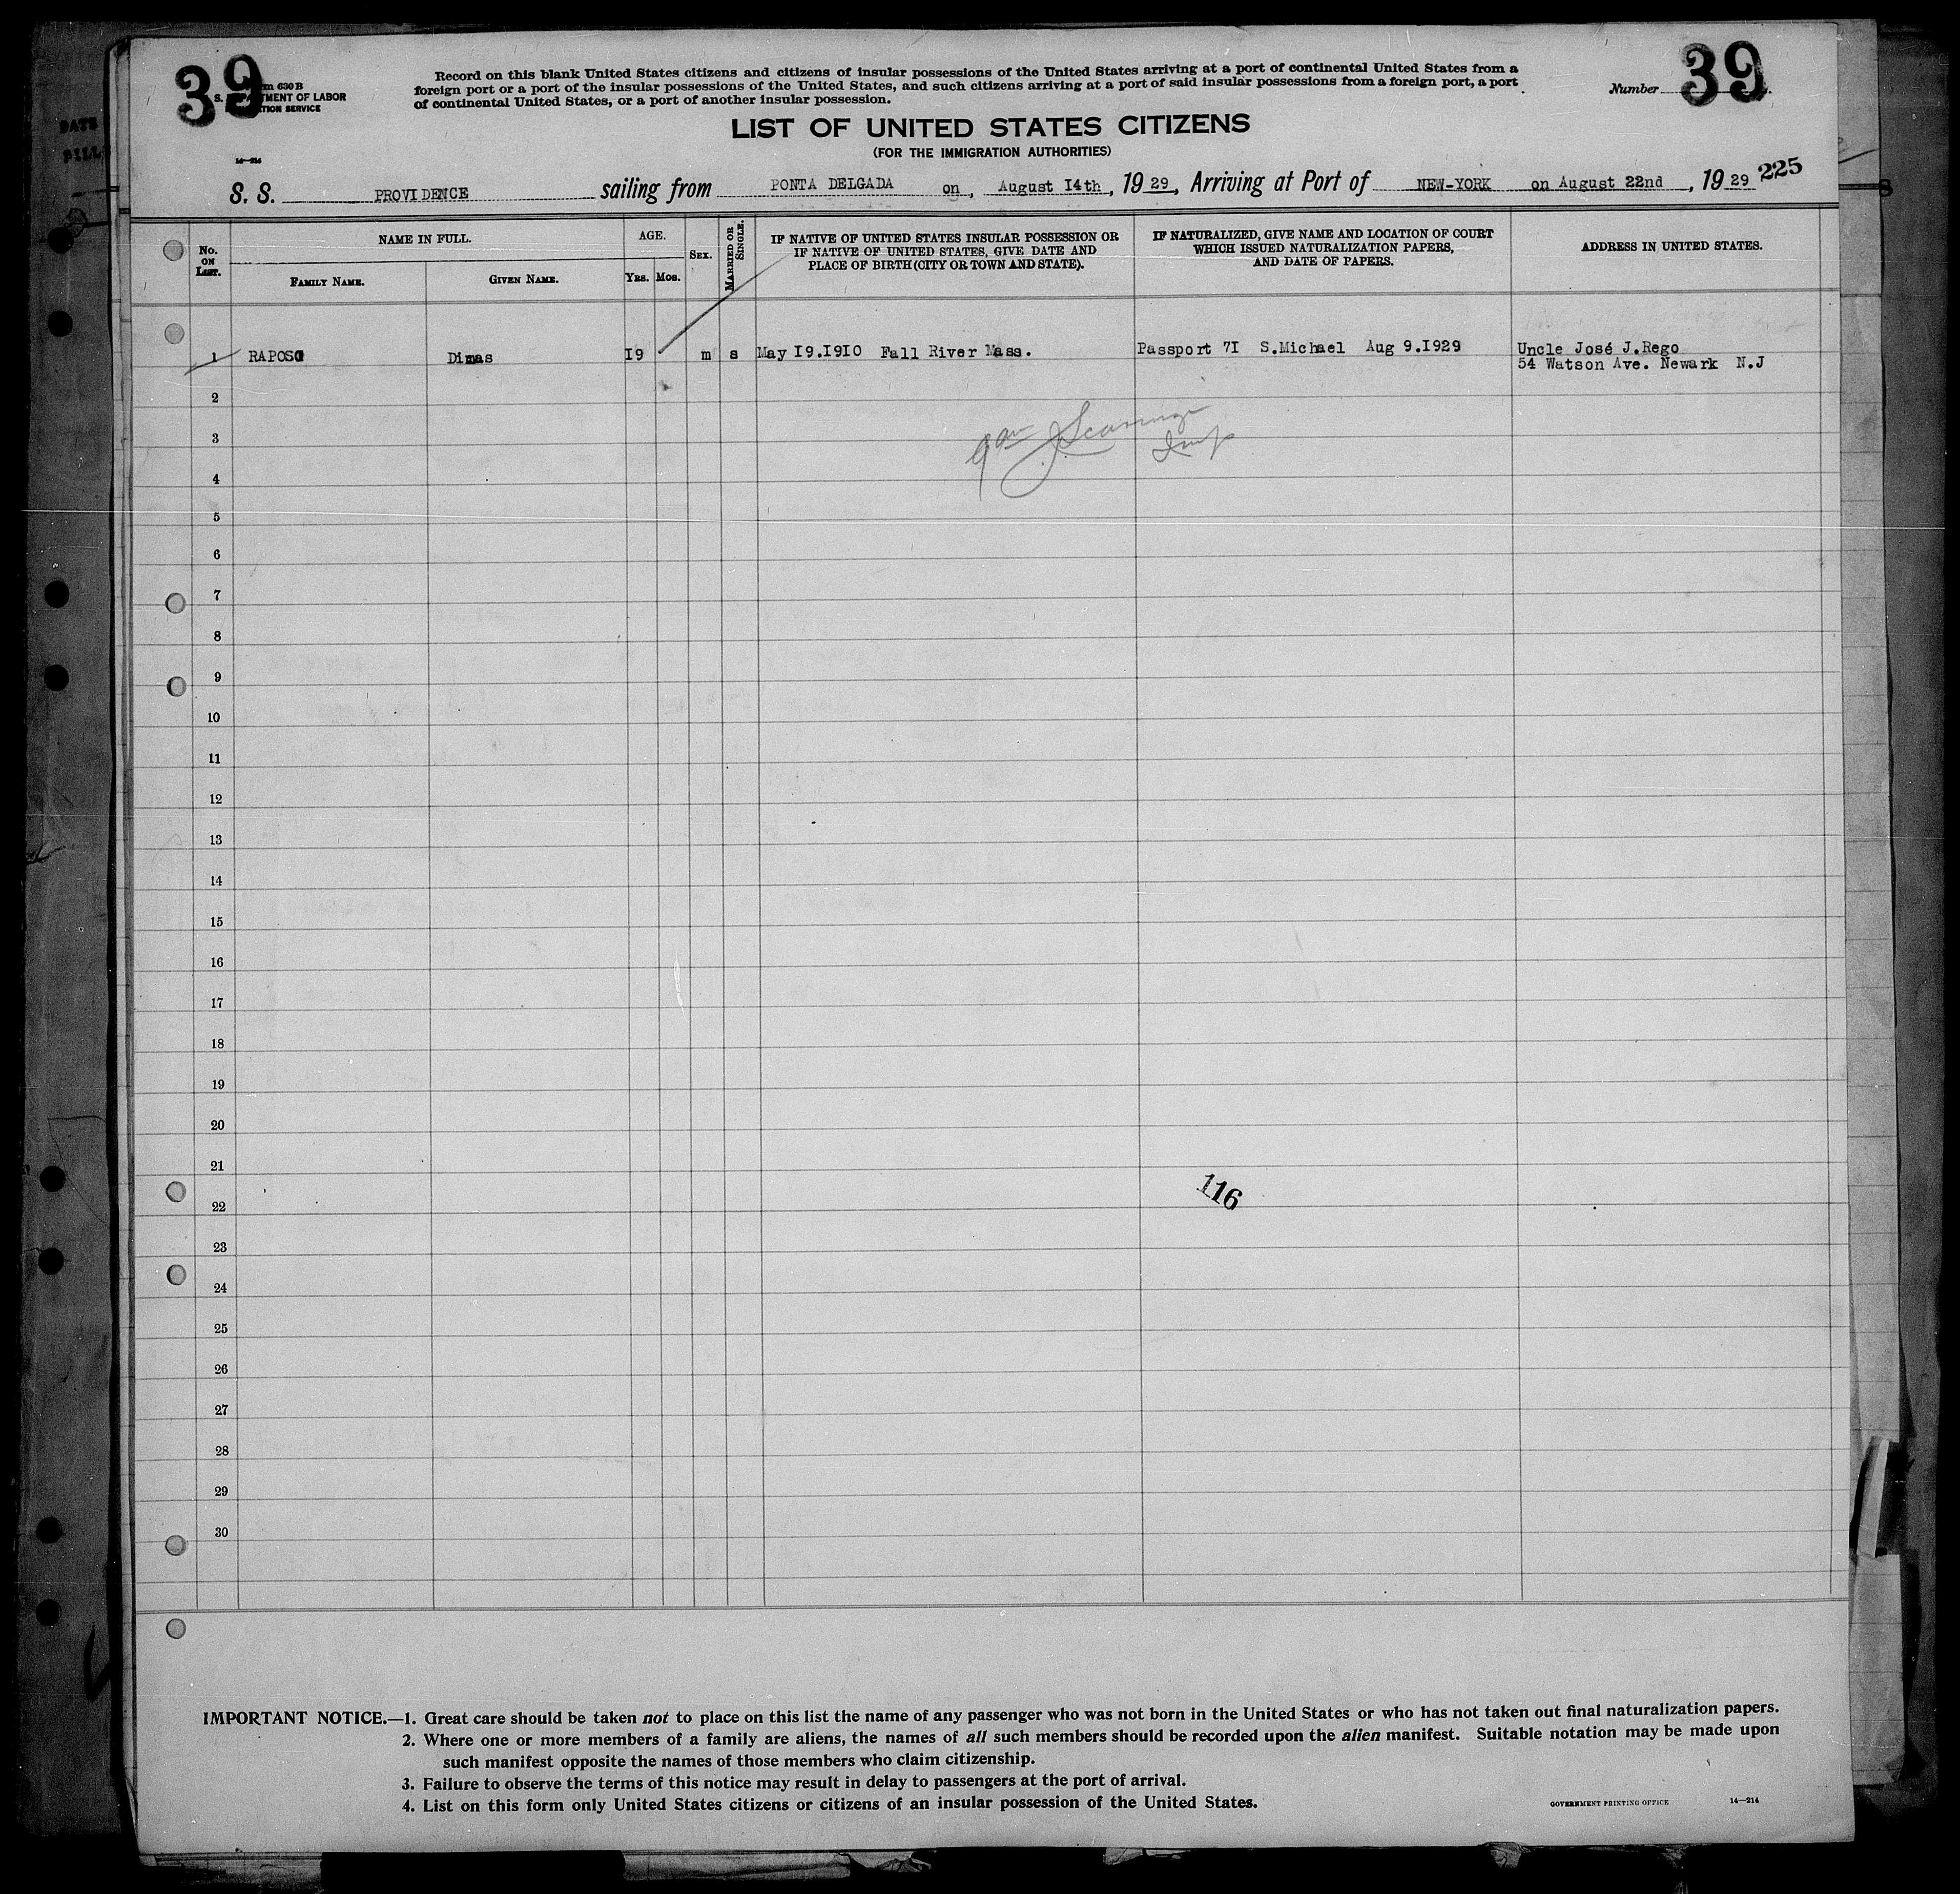 39
39
m 630 B
S. DEPARTMENT OF LABOR
TION SERVICE
14—214
Record on this blank United States citizens and citizens of insular possessions of the United States arriving at a port of continental United States from a
foreign port or a port of the insular possessions of the United States, and such citizens arriving at a port of said insular possessions from a foreign port, a port
of continental United States, or a port of another insular possession.
Number
LIST OF UNITED STATES CITIZENS
(FOR THE IMMIGRATION AUTHORITIES)
S. S. PROVIDENCE sailing from PONTA DELGADA on, August I4th, 19 29, Arriving at Port of NEW-YORK on August 22nd, 19 29 225
No. ON LIST.
NAME IN FULL.
FAMILY NAME.
GIVEN NAME.
AGE.
YRS. MOS.
SEX.
MARRIED OR SINGLE.
IF NATIVE OF UNITED STATES INSULAR POSSESSION OR
IF NATIVE OF UNITED STATES, GIVE DATE AND
PLACE OF BIRTH (CITY OR TOWN AND STATE).
IF NATURALIZED, GIVE NAME AND LOCATION OF COURT
WHICH ISSUED NATURALIZATION PAPERS,
AND DATE OF PAPERS.
ADDRESS IN UNITED STATES.
1 RAPOSO Dimas I9 m s May I9.I9I0 Fall River Mass. Passport 7I S.Michael Aug 9.I929 Uncle José J.Rego
54 Watson Ave. Newark N.J
2
3
4
5
6
7
8
9
10
11
12
13
14
15
16
17
18
19
20
21
116
22
23
24
25
26
27
28
29
30
IMPORTANT NOTICE.—1. Great care should be taken not to place on this list the name of any passenger who was not born in the United States or who has not taken out final naturalization papers.
2. Where one or more members of a family are aliens, the names of all such members should be recorded upon the alien manifest. Suitable notation may be made upon
such manifest opposite the names of those members who claim citizenship.
3. Failure to observe the terms of this notice may result in delay to passengers at the port of arrival.
4. List on this form only United States citizens or citizens of an insular possession of the United States.
GOVERNMENT PRINTING OFFICE 14—214